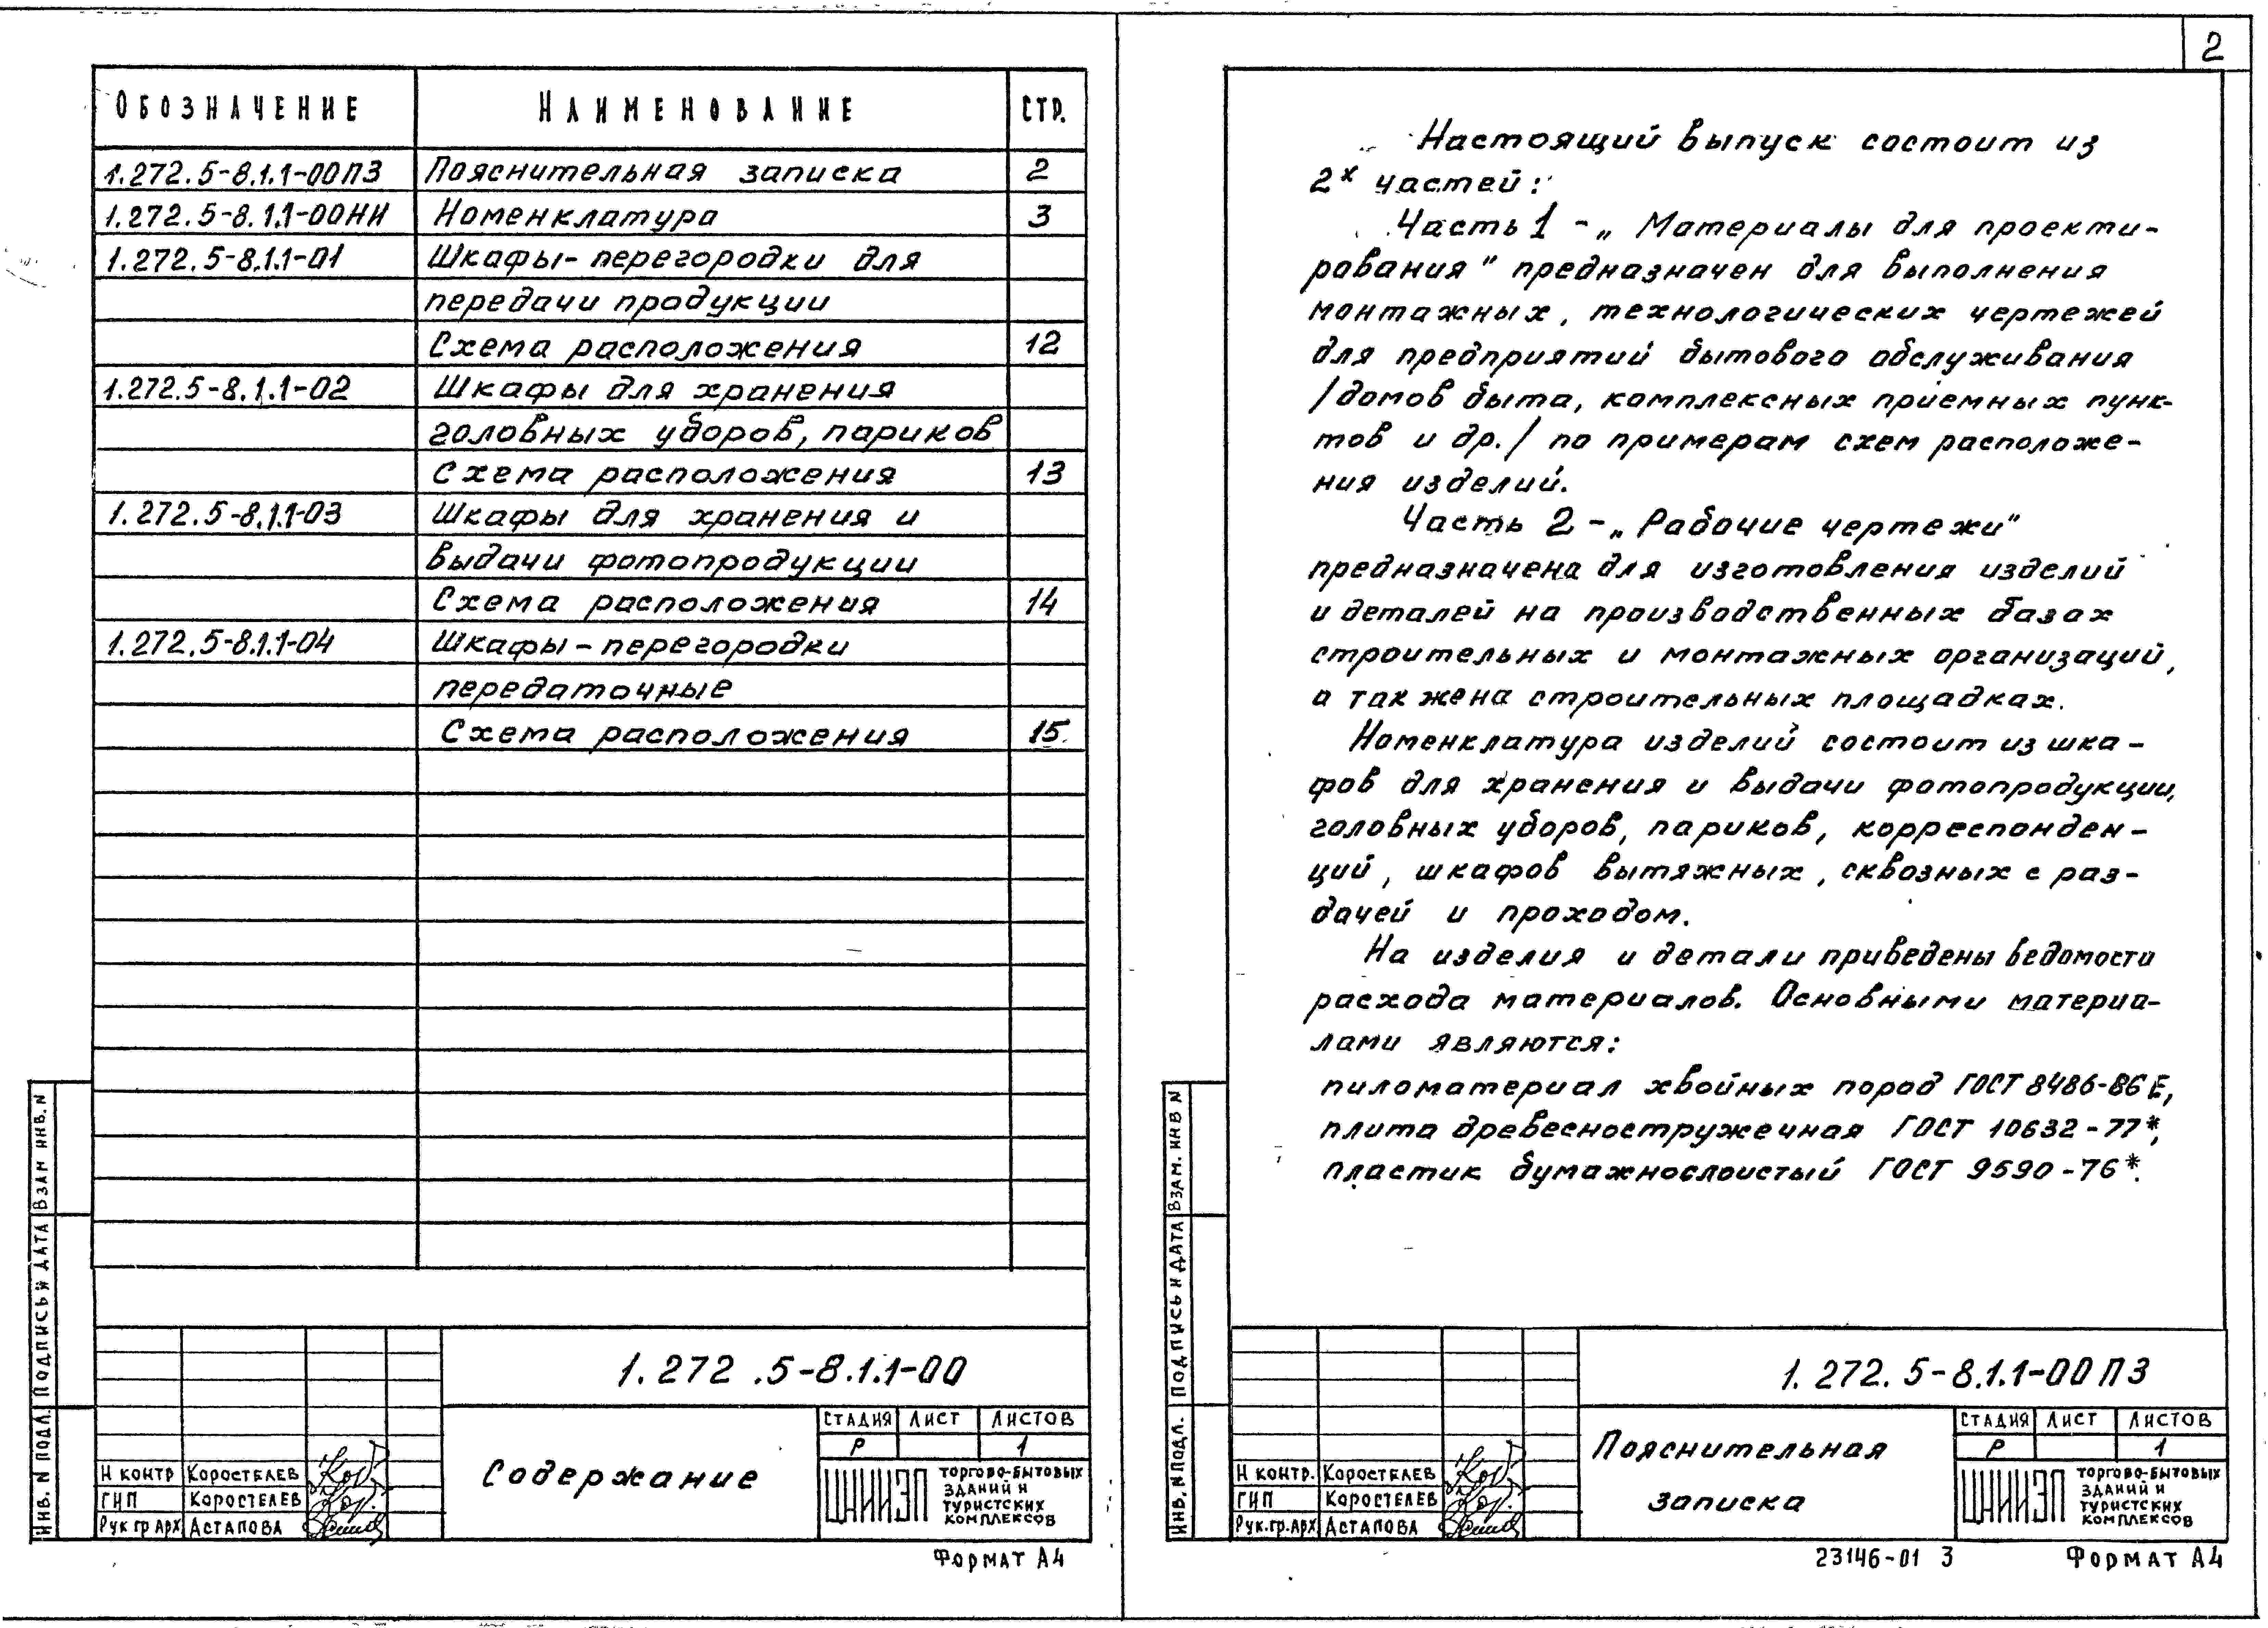 Обозначение Наименование стр.
1.272.5-8.1.1-00ПЗ Пояснительная записка 2
1.272.5-8.1.1-00НИ Номенклатура 3
1.272.5-8.1.1-01 Шкафы-перегородки для
передачи продукции
Схема расположения 12
1.272.5-8.1.1-02 Шкафы для хранения
головных уборов, париков
Схема расположения 13
1.272.5-8.1.1-03 Шкафы для хранения и
выдачи фотопродукции
Схема расположения 14
1.272.5-8.1.1-04 Шкафы-перегородки
передаточные
Схема расположения 15
Взам инв. N
Подпись и дата
Инв. N подл.
1.272.5-8.1.1-00
Содержание
стадия лист листов
Р 1
Н контр Коростелев
ГИП Коростелев
Рук гр арх Астапова
ЦНИИЭП торгово-бытовых
зданий и
туристских
комплексов
Формат А4
2
Настоящий выпуск состоит из
2х частей:
Часть 1 - „Материалы для проекти-
рования" предназначен для выполнения
монтажных, технологических чертежей
для предприятий бытового обслуживания
/домов быта, комплексных приемных пунк-
тов и др./ по примерам схем расположе-
ния изделий.
Часть 2 - „Рабочие чертежи"
предназначена для изготовления изделий
и деталей на производственных базах
строительных и монтажных организаций,
а так жена строительных площадках.
Номенклатура изделий состоит из шка-
фов для хранения и выдачи фотопродукции,
головных уборов, париков, корреспонден-
ций, шкафов вытяжных, сквозных с раз-
дачей и проходом.
На изделия и детали приведены ведомости
расхода материалов. Основными материа-
лами являются:
пиломатериал хвойных пород ГОСТ 8486-86Е,
плита древесностружечная ГОСТ 10632-77*,
пластик бумажнослоистый ГОСТ 9590-76*.
Взам. инв N
Подпись и дата
Инв. N подл.
1.272.5-8.1.1-00 ПЗ
Пояснительная
записка
стадия лист листов
Р 1
Н контр. Коростелев
ГИП Коростелев
Рук.гр.арх Астапова
ЦНИИЭП торгово-бытовых
зданий и
туристских
комплексов
23146-01 3 Формат А4